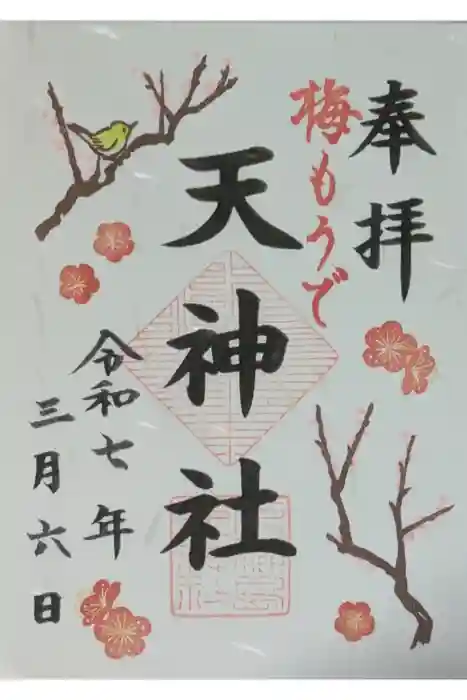 奉拝
梅もうで
天神社
令和七年
三月六日